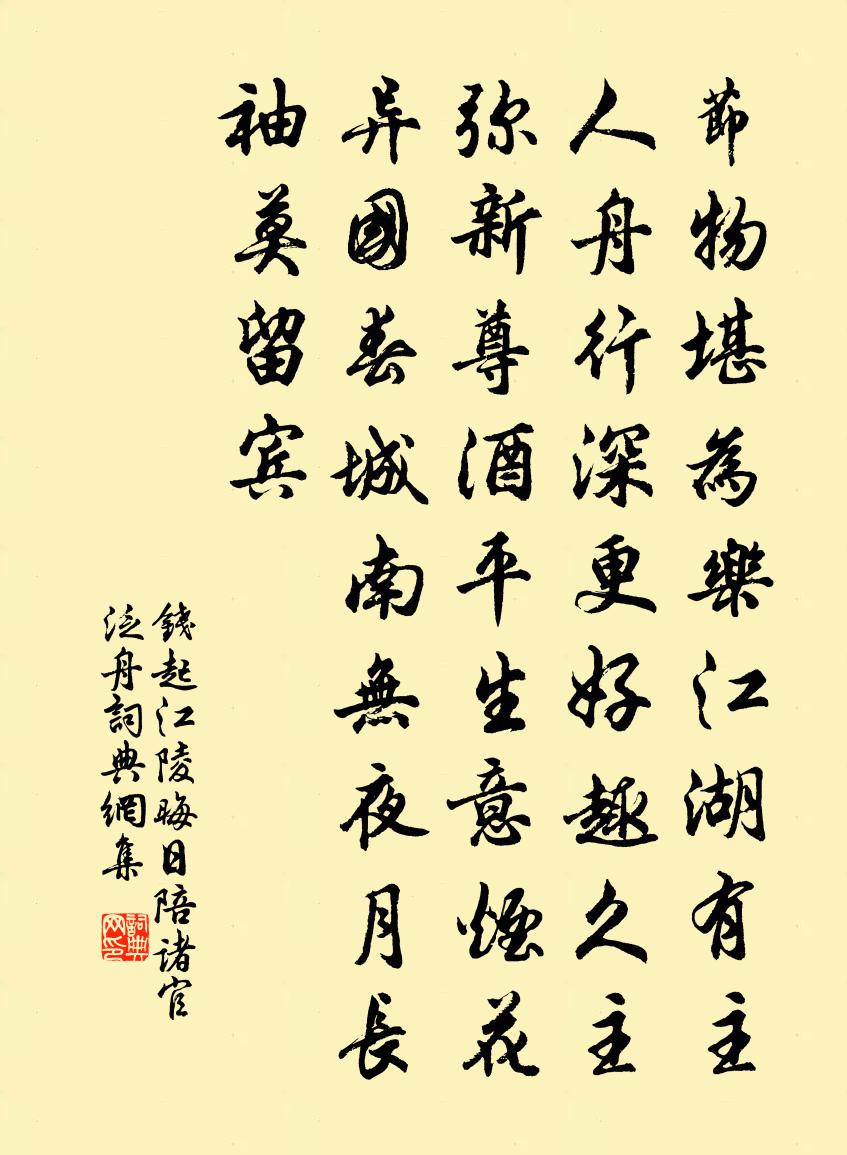 節物堪為樂江湖有主
人舟行深更好趣久主
弥新尊酒平生意煙花
异國春城南無夜月長
袖莫留宾
錢起江陵晦日陪诸官
泛舟詞典網集
詞典网印